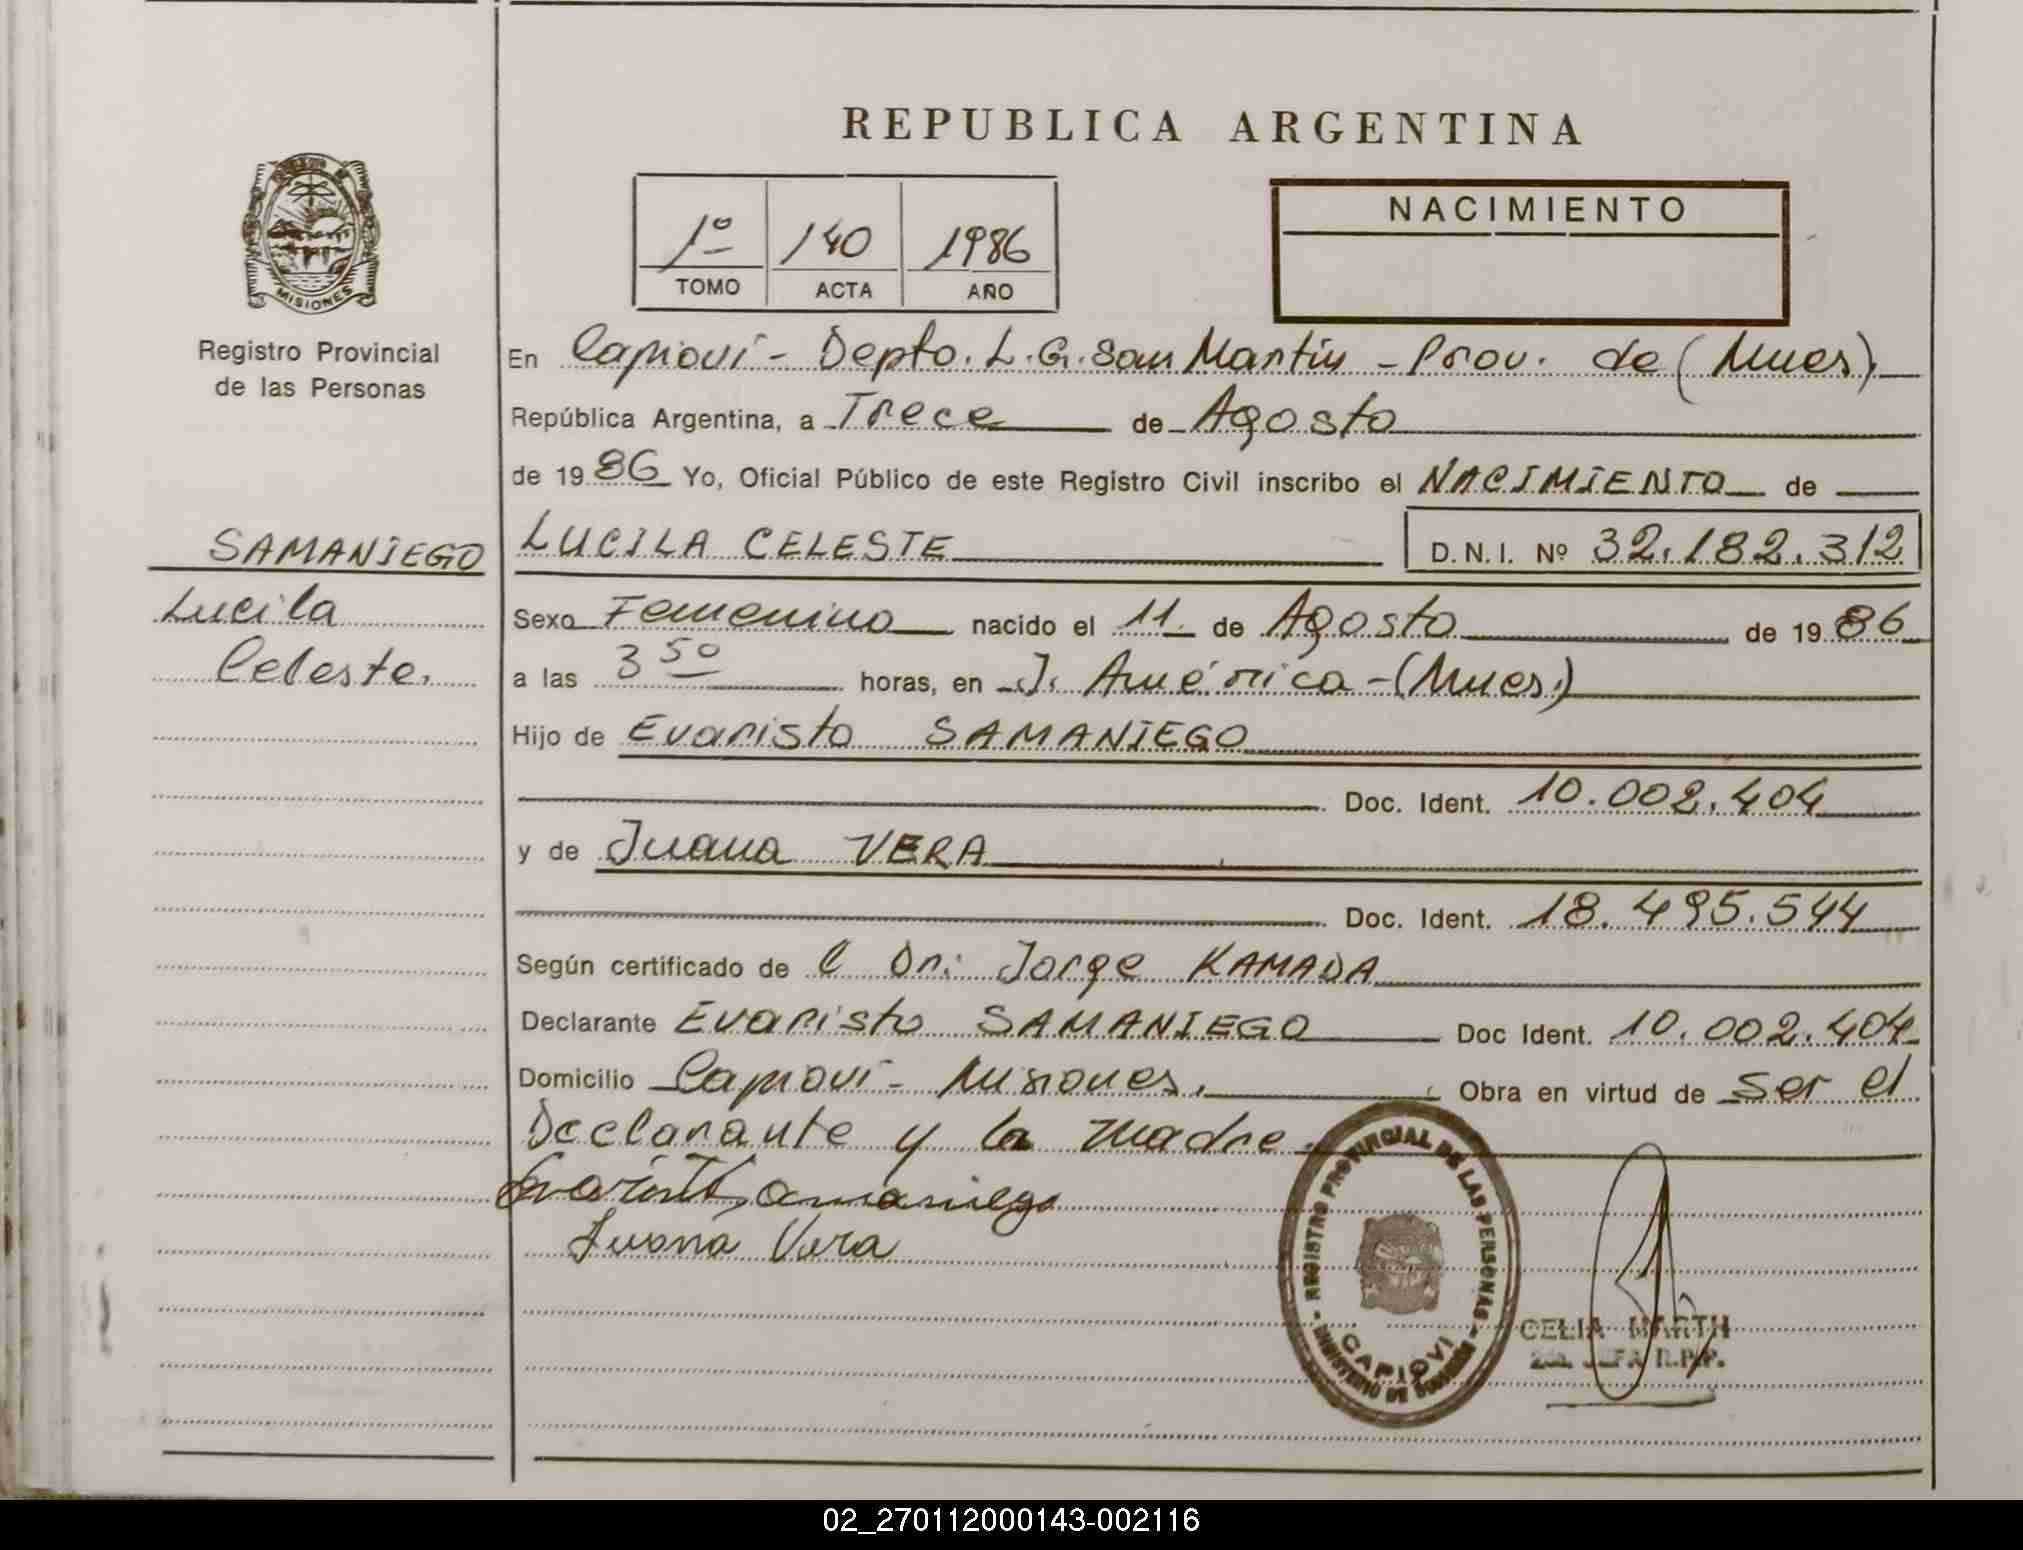 REPUBLICA ARGENTINA
MISIONES
Registro Provincial
de las Personas
1º 140 1986
TOMO ACTA AÑO
NACIMIENTO
En Capioví - Depto. L.G. San Martín - Prov. de (Mnes).
República Argentina, a Trece de Agosto
de 1986 Yo, Oficial Público de este Registro Civil inscribo el NACIMIENTO de
SAMANIEGO
Lucila
Celeste.
LUCILA CELESTE D.N.I. Nº 32.182.312
Sexo Femenino nacido el 11 de Agosto de 1986
a las 3 50 horas, en J. América - (Mnes.)
Hijo de Evaristo SAMANIEGO
Doc. Ident. 10.002.404
y de Juana VERA
Doc. Ident. 18.495.544
Según certificado de C Dr: Jorge KAMADA
Declarante Evaristo SAMANIEGO Doc Ident. 10.002.404
Domicilio Capioví - Misiones. Obra en virtud de ser el
Declarante y la madre.
Evaristo Samaniego
Juana Vera
REGISTRO PROVINCIAL DE LAS PERSONAS
MINISTERIO DE GOBIERNO
CAPIOVI
CELIA MARTH
2da. JEFA R.P.P.
02_270112000143-002116